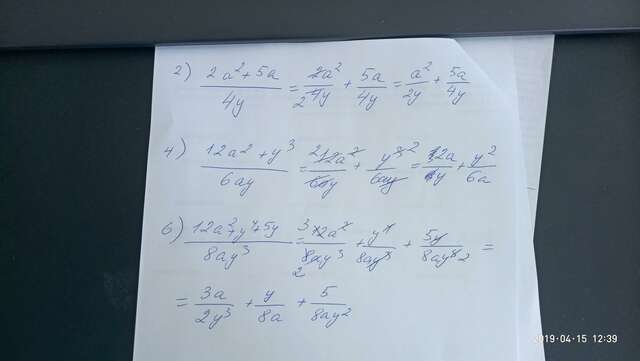 2) (2a² + 5a)/(4y) = 2a²/(4y) 2 + 5a/(4y) = a²/(2y) + 5a/(4y)
4) (12a² + y³)/(6ay) = 2 12a²/(6ay) + y³ ²/(6ay) = 2a/y + y²/(6a)
6) (12a² + y⁴ + 5y)/(8ay³) = 3 12a²/(8ay³) 2 + y⁴/(8ay³) + 5y/(8ay³) 2 =
= 3a/(2y³) + y/(8a) + 5/(8ay²)
2019-04-15 12:39